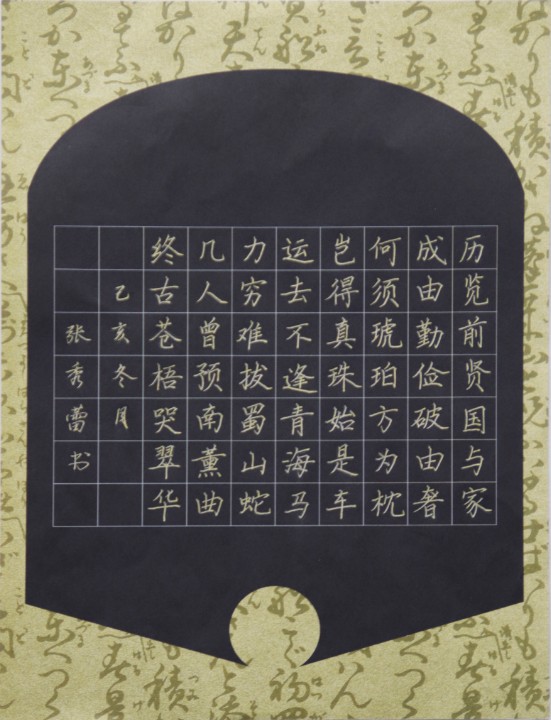 历览前贤国与家
成由勤俭破由奢
何须琥珀方为枕
岂得真珠始是车
运去不逢青海马
力穷难拔蜀山蛇
几人曾预南薰曲
终古苍梧哭翠华
乙亥冬月
张秀蕾书